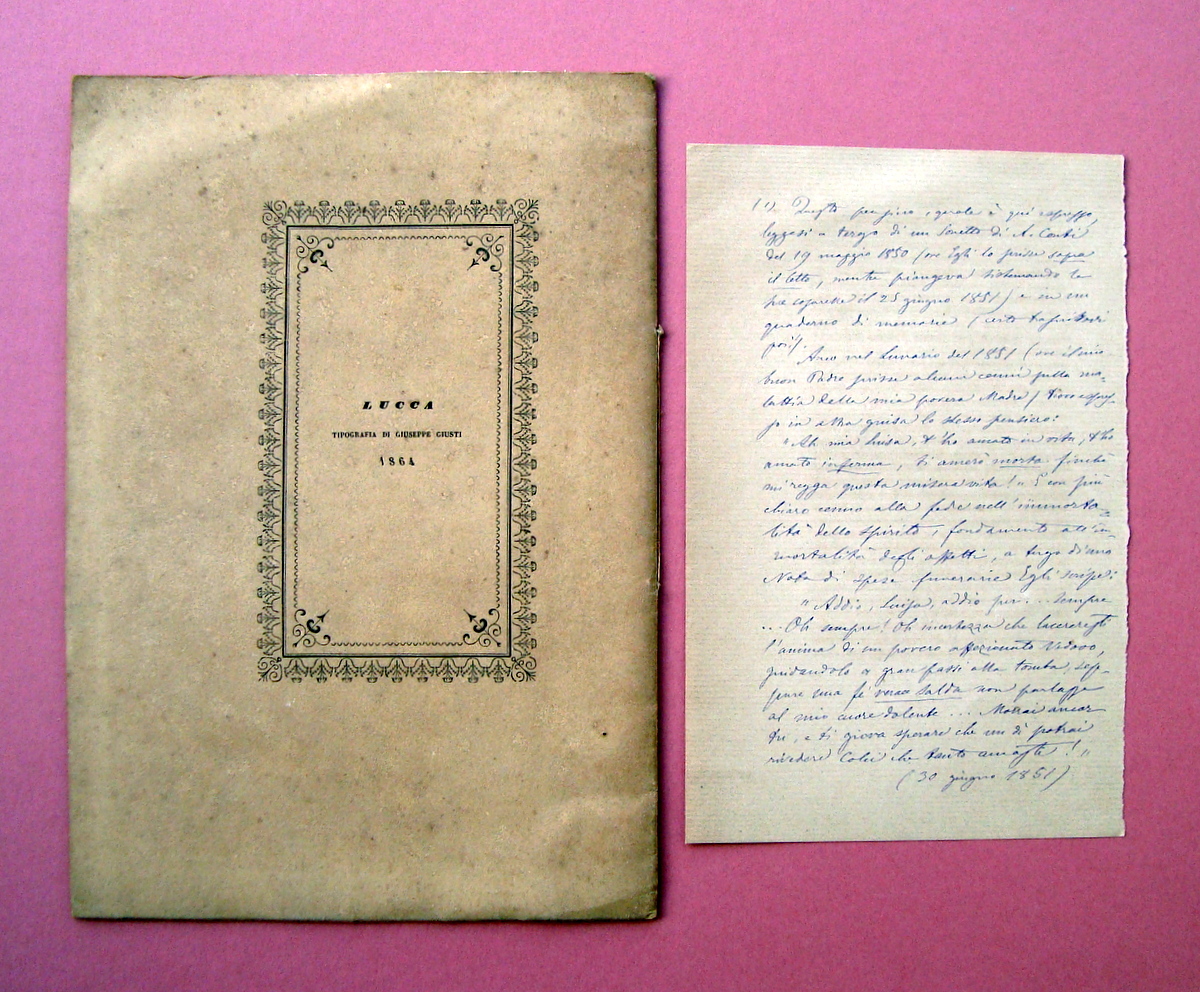 LUCCA
TIPOGRAFIA DI GIUSEPPE GIUSTI
1864
(1) Questo pensiero, quale è qui espresso,
leggesi a tergo di un Sonetto di A. Conti
del 19 maggio 1850 (ove Egli lo scrisse sopra
il letto, mentre piangeva sistemando le
il 25 giugno 1851) e in un
quaderno di memorie (
poi).
Anco nel Lunario del 1851 (ove il mio
buon Padre scrisse alcuni cenni sulla ma=
lattia della mia povera Madre) trovo espres=
so in altra guisa lo stesso pensiero:
"Ah mia Luisa, t' ho amato in vita, t' ho
amato inferma, ti amerò morta finchè
mi regga questa misera vita!" E con più
chiaro cenno alla fede nell' immorta=
lità dello spirito, fondamento all' im=
mortalità degli affetti, a tergo di una
Nota di spese funerarie Egli scrisse:
"Addio, Luisa, addio per... sempre
... Oh sempre! Oh incertezza che lacereresti
l'anima di un povero affezionato Vedovo,
guidandolo a gran passi alla tomba, sep=
pure una fè verace salda non parlasse
al mio cuore dolente ... Morrai ancor
tu, e ti giova sperare che un dì potrai
rivedere Colei che tanto amasti!"
(30 giugno 1851)